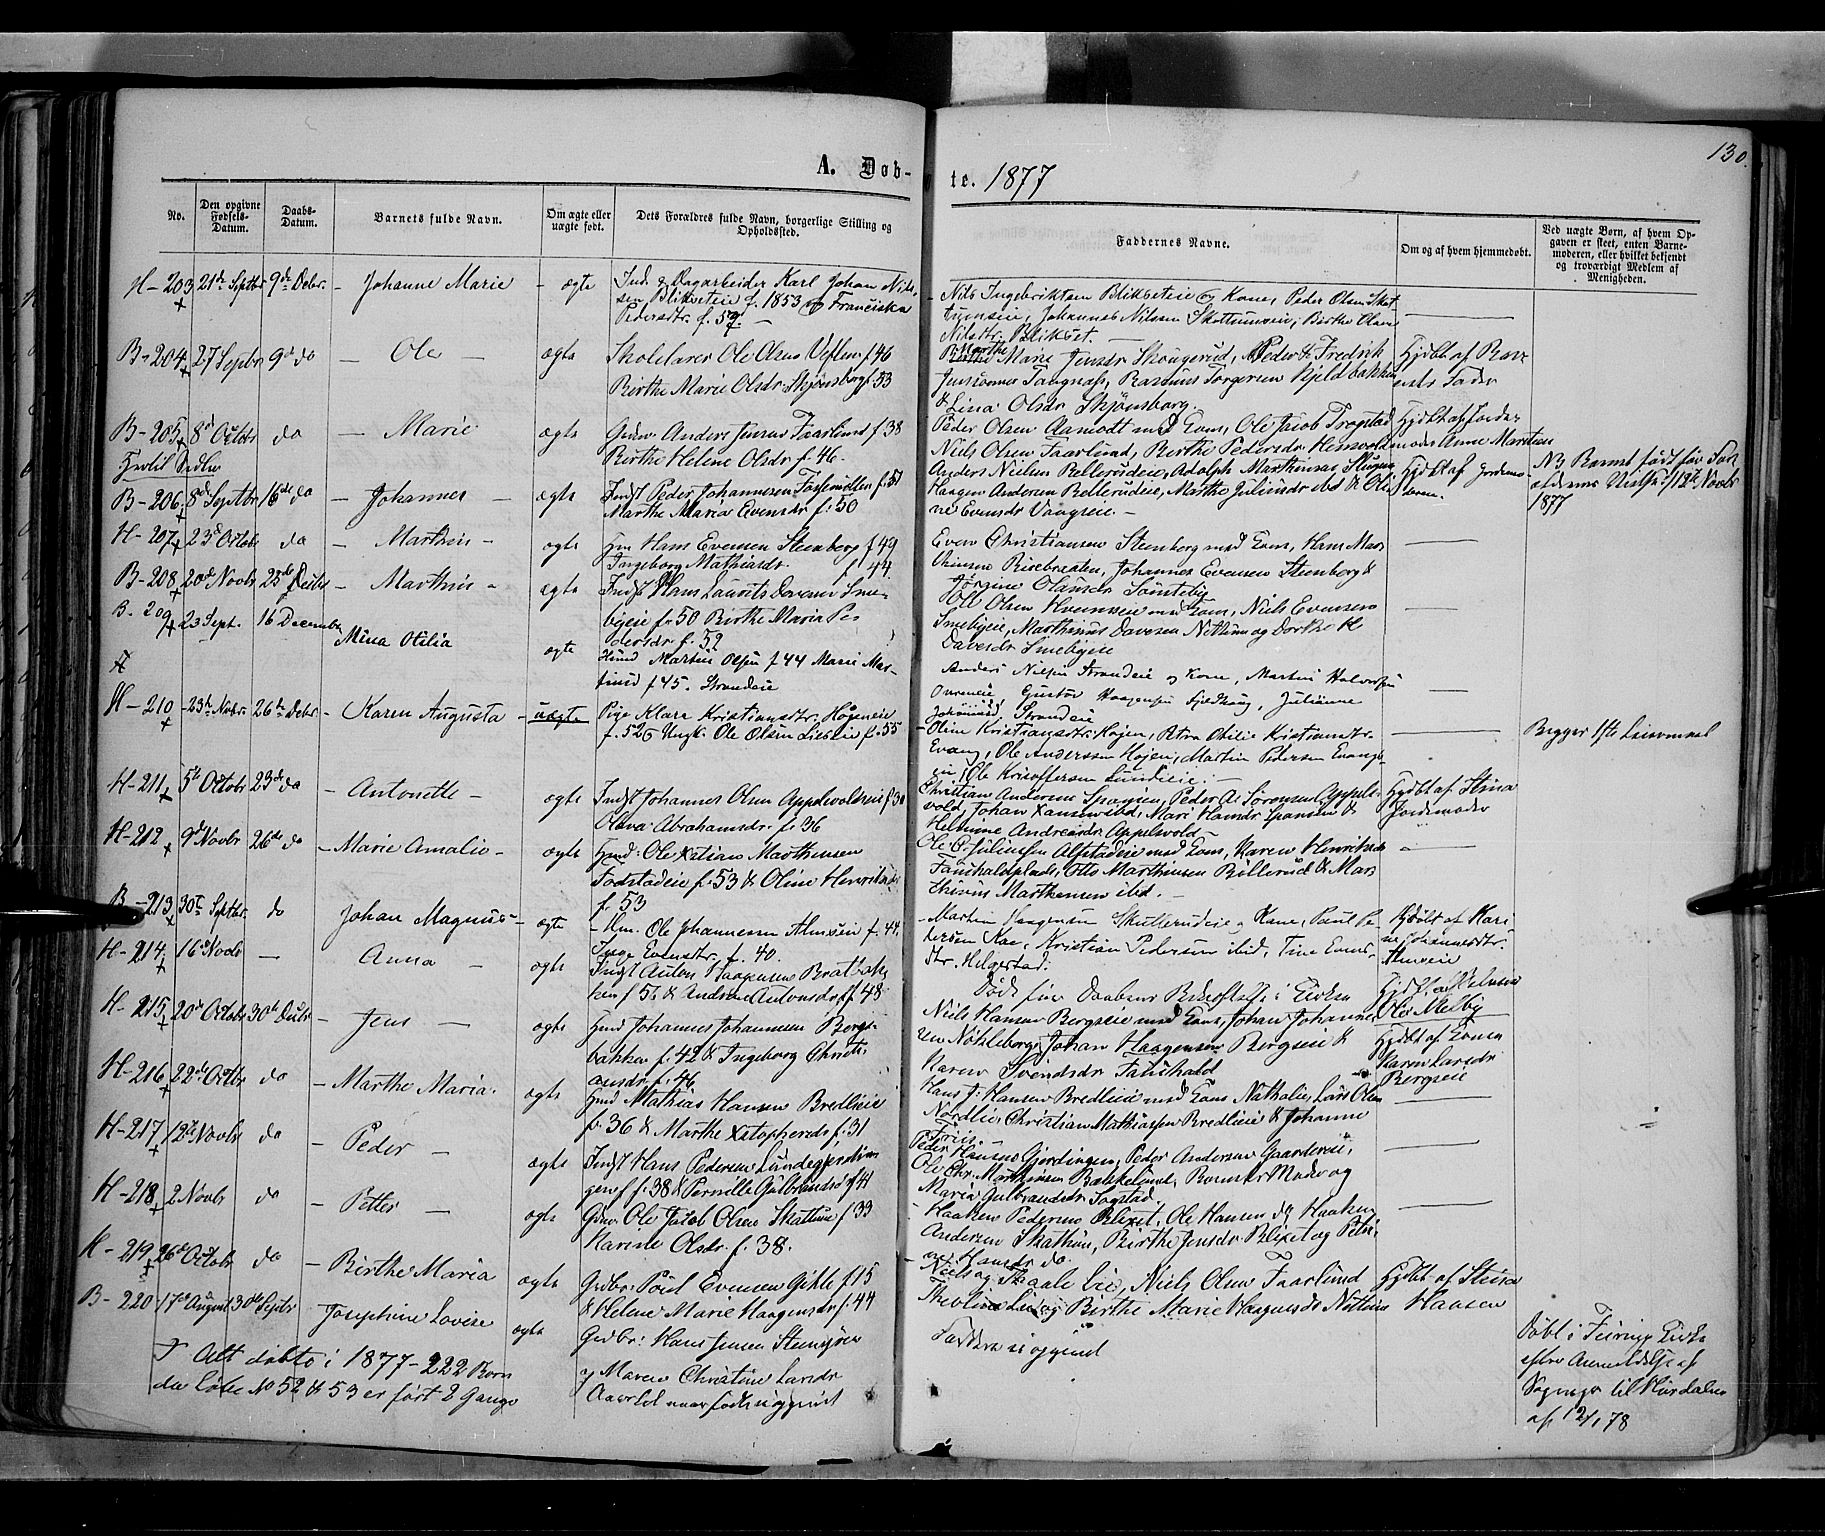 130.
A. Døb-
te. 1877
No.
Den opgivne Fødsels-Datum.
Daabs-Datum.
Barnets fulde Navn.
Om ægte eller uægte født.
Dets Forældres fulde Navn, borgerlige Stilling og Opholdssted.
Faddernes Navne.
Om og af hvem hjemmedøbt.
Ved uægte Børn, af hvem Op-
gaven er skeet, enten Barne-
moderen, eller hvilket bekjendt
og troværdigt Medlem af
Menigheden.
H-203 21de Septbr 9de Debr. - Johanne Marie - ægte
Ind. og Dagarbeider Karl Johan Nils-
sen Bliksteie f. 1853 og Franciska
Pedersdtr. f. 52. -
Nils Ingebriktsen Blikseteie og Kone, Peder Olsen Skat
tumseie, Johannes Nilsen Skattumseie, Birthe Olava
Nilsdtr. Blikset. -
B-204 27 Sepbr 9 do - Ole - ægte
Skolelærer Ole Olsen Vestlen f 46
Birthe Marie Olsdr. Skjønsberg f. 53
Marthe Marie Jensdr Skougerud, Peder & Fredrik
Jenssønner Tangnæs, Rasmus Torgersen Kjeldbakken
& Lina Olsdr Skjønsberg.
Hjdbt af Bar
nets Fader
B-205 8d Octobr do - Marie - ægte
Gdbr Anders Jensen Faarlund f 38
Birthe Helene Olsdr. f. 46.
Peder Olsen Aamodt med Kone, Ole Jacob Trogstad
Niels Olsen Faarlund, Birthe Pedersdr Hensvold
Hjdbt af Jorder
moder Anne Martin
B-206 8d Septbr 16de do - Johannes - ægte
Indst Peder Johannesen Fossemøllen f. 51
Marthe Maria Evensdr f. 50
Anders Nielsen Bellerudeie, Adolph Marthinsen
Haagen Andersen Bellerudeie, Marthe Juliusdr ibd & Oli
ne Evensdr Vangseie. -
Hjdbt af Jordemo
deren.
NB Barnet født før For
ældrenes Vielse 12te Novbr
1877
H-207 23d Octobr do - Marthin - ægte
Hm Hans Evensen Steenberg f 49
Ingeborg Mathiasdr. f. 44.
Even Christiansen Steenberg med Kone, Hans Mar
thinsen Risebraaten, Johannes Evensen Steenberg &
Jørgine Olausdr Sønsteby
B-208 20d Novbr 25de Decbr - Marthin - ægte
Indst Hans Lauritz Davesen Sme-
byeie f. 50 Birthe Maria Pe
dersdr f. 52
Ole Olsen Hvemseie med Kone, Niels Evensen
Smebyeie, Marthinus Davesen Nettum og Dorthe H
Davesdr Smebyeie
B. 209 23 Sept. 16 December Mina Otilia ægte
Husmd Martin Olsen f 44 Marie Mar
tinsd f 45. Strandeie
Anders Nilsen Strandeie og Kone, Martin Halvorsen
Gustav Haagensen Julianne
Johannesd Strandeie
H-210 23de Novbr. 26de Debr. - Karen Augusta - uægte
Pige Klara Kristiansdtr. Høgseie
f. 52 & Ungk. Ole Olsen Lieseie f. 55
Olia Kristiansdtr. Høgen, Petra Otilie Kristiansdtr.
Evang, Ole Anderssen Høgen, Martin Pedersen Evangs
eie, Ole Kristoffersen Lundeie. -
Begges 1ste Leiermaal
H-211 5te Octobr 23de do - Antonette - ægte
Indst Johannes Olsen Appelvoldseie f 30
Olava Abrahamsdr. f. 36
Christian Andersen Peder A. Sørensen Appel-
vold, Johan Mari Hansdr &
Helene Andreasdr Appelvold -
Hjdbt af Stina
Jordemoder
H-212 9d Novbr 26de do - Marie Amalie - ægte
Husmd: Ole Xstian Marthinsen
Fodstadeie f. 53 & Oline Henriksdr
f. 53
Ole P. Juliussen Alfstadeie med Kone, Karen Henriksdr
Fauchaldplads, Otto Marthinsen Billerud & Mar
thinus Marthinsen ibd. -
B-213 30te Septbr. do Johan Magnus - ægte
- Hm. Ole Johannessen Almseie f. 44.
Inge Evensdtr. f. 40.
- Martin Haagensen Skutterudeie & Kone, Paul Pe-
tersen Kae, Kristian Pedersen ibid, Tine Evens-
dtr. Helgestad.
Hjdøbt af Kari
ne Johannesdtr.
Almseie
H-214 16de Novbr - Anna - ægte
Indst Anton Haagensen Bratbak-
ken f 56 & Andrea Antonsdr f. 48
Døde før Daabens Bekræftelse i Kirken
Hjdbt. af Helene
Olsd Melby
H-215 20de Octobr 30te Decbr - Jens - ægte
Husmd Johannes Johannesen Bergs-
bakken f. 42 & Ingeborg Christi-
ansdr. f. 46
Niels Hansen Bergseie med Kone, Johan Johanne
sen Nøkleberg, Johan Haagensen Bergseie &
Karen Svendsdr Fauchald
Hjdbt af Kona
Karen Larsdr
Bergseie
H-216 22de Octbr do - Marthe Maria. ægte
Husmd Mathias Hansen Bredlieie
f. 36 & Marthe Xstophersdr f. 31
Hans J. Hansen Bredlieie med Kone Nathalie, Lars Olsen
Nordlie, Christian Mathiassen Bredlieie & Johanne
Friis
H-217 12te Novbr do - Peder - ægte
Indst Hans Pedersen Lundegjerdin
gen f 38 & Pernille Gulbrandsd f 41
Peder Hansen Gjerdingen, Peder Andersen Gaardereie,
Ole Chr. Marthinsen Bakkelund,
Maria Gulbrandsdr Sogstad.
H-218 2 Novbr do - Petter - ægte
Gdbr Ole Jacob Olsen Skattum f 33
Karine Olsdr. f. 38.
- Haaken Pedersen Blixet, Ole Hansen og Haaken
Andersen Skattum, Birthe Jensdr. Blixet og Petri-
ne Hansdr do
H-219 26d Octobr do - Birthe Maria ægte
Gdbr. Poul Evensen Gihle f 15
& Helene Marie Haagensdr f. 44
- Niels og Paale Lie, Niels Olsen Faarlund
Theoline Lie og Birthe Marie Haagensdr Nettum
Hjdbt af Stina
Hansen
B-220 17de August 30te Septbr Josephine Lovise ægte
Gdbr: Hans Jensen
og Maren Christine Larsdr
Faddere uopgivne
Døbt i Feiring Kirke
efter Anmeldelse af
Sognepr til Hurdalen
af 12/1 78
I Alt døbte i 1877 - 222 Børn
da løbe No 52 & 53 er ført 2 Gange